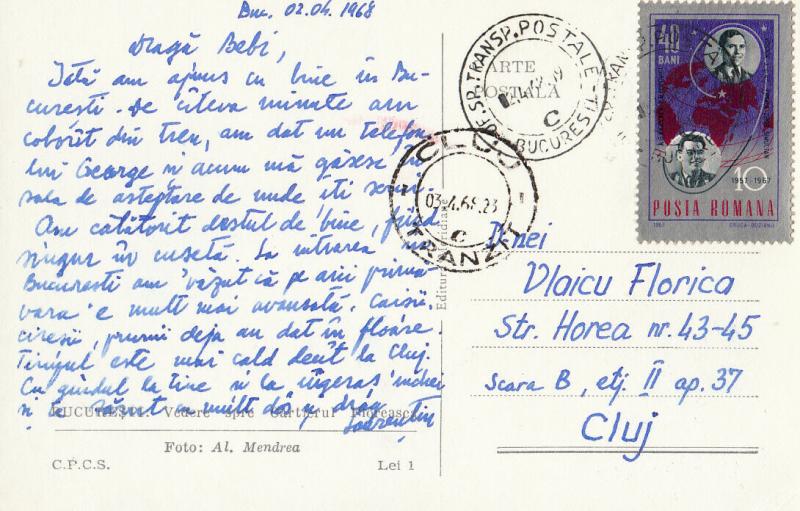 Buc. 02.04.1968
Dragă Bebi,
Iată am ajuns cu bine în Bu-
curești. De cîteva minute am
coborît din tren, am dat un telefon
lui George și acum mă găsesc în
sala de așteptare de unde îți scriu.
Am călătorit destul de bine, fiind
singur în cușetă. La intrarea
București am văzut că pe aici primă-
vara e mult mai avansată. Caișii,
cireșii, prunii deja au dat în floare.
Timpul este mai cald decît la Cluj.
Cu gîndul la tine și la îngeraș
și te sărut cu mult dor și drag
Laurențiu
BUCUREȘTI. Vedere spre Cartierul Floreasca
Foto: Al. Mendrea
C.P.C.S. Lei 1
Editura Meridiane
CARTE
POSTALĂ
OF. SP. TRANSP. POSTALE
BUCUREȘTI
C
CLUJ
03.4.68.23
C
TRANZIT
40
BANI
40
1957-1967
POSTA ROMANA
1967
D-nei
Vlaicu Florica
Str. Horea nr. 43-45
Scara B, etj. II ap. 37
Cluj